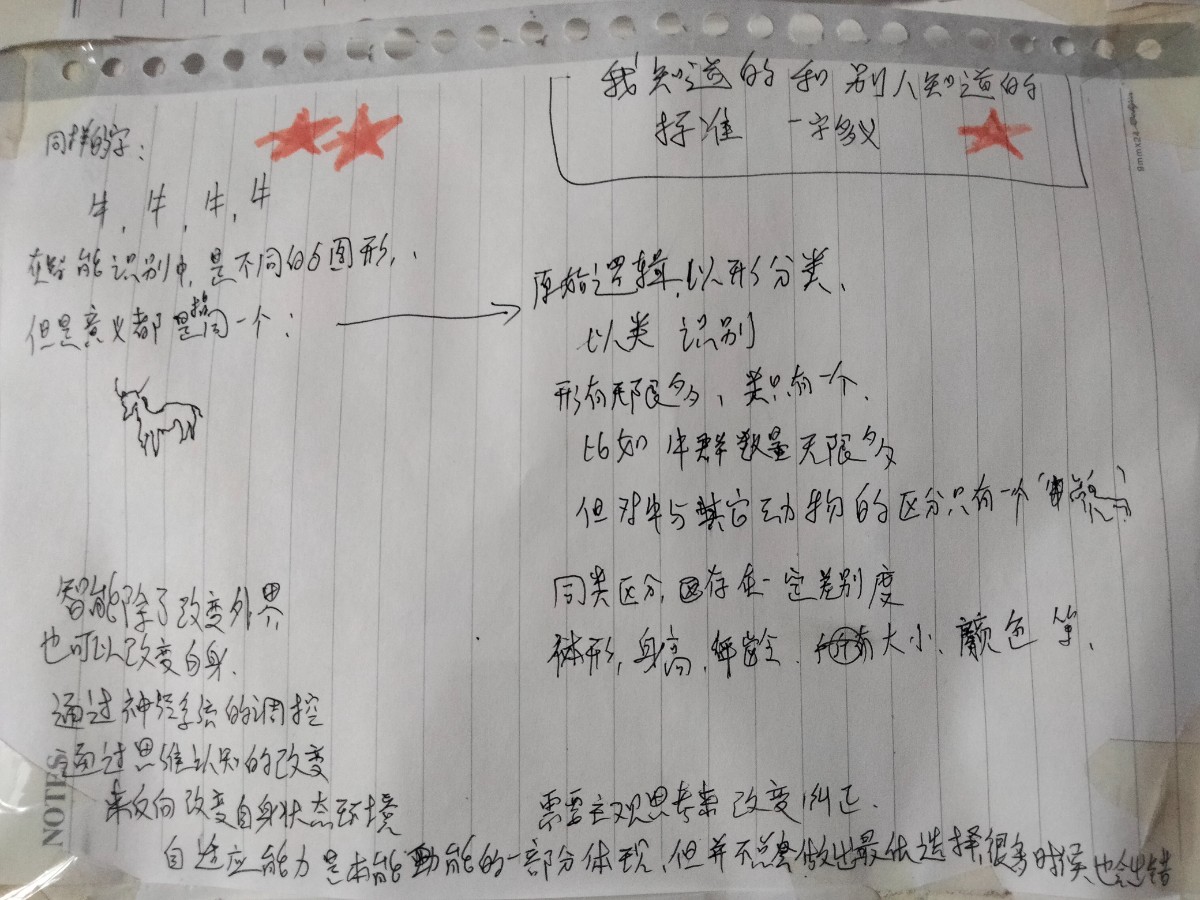 我知道的和别人知道的
标准 一字多义
同样的字:
牛, 牛, 牛, 牛
在智能识别中,是不同的图形,
但是意义都是指同一个:
原始逻辑,以形分类、
以类 识别
形有无限多,类只有一个.
比如 牛群数量无限多
但对牛与其它动物的区分只有一个
同类区分,存在一定差别度
体形,身高,年龄,大小、颜色 等.
智能除了改变外界
也可以改变自身.
通过神经系统的调控
通过思维认知的改变
来反向改变自身状态环境
需要主观思考来改变纠正.
自适应能力是本能动能的一部分体现,但并不总会做出最优选择,很多时候也会出错
NOTES